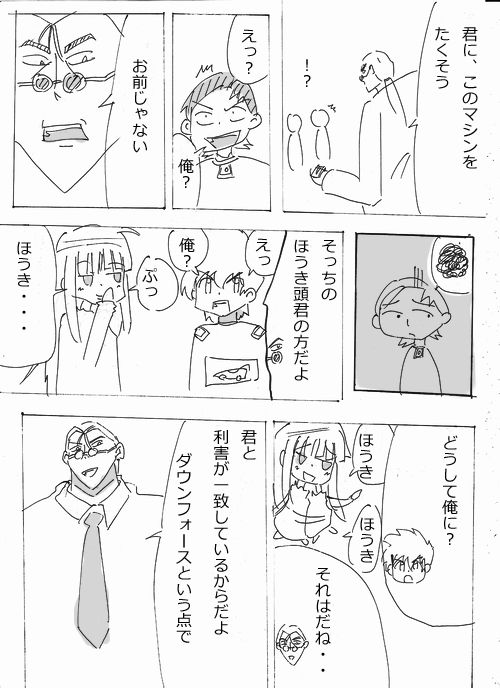 君に、このマシンを
たくそう
！？
えっ？
俺？
お前じゃない
そっちの
ほうき頭君の方だよ
えっ
俺？
ぷっ
ほうき・・・
どうして俺に？
ほうき
ほうき
それはだね・・
君と
利害が一致しているからだよ
ダウンフォースという点で